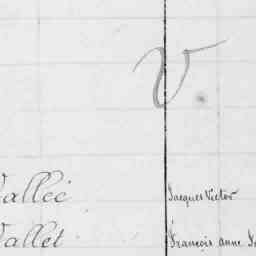 V
Vallée Jacques Victor
Vallet François anne